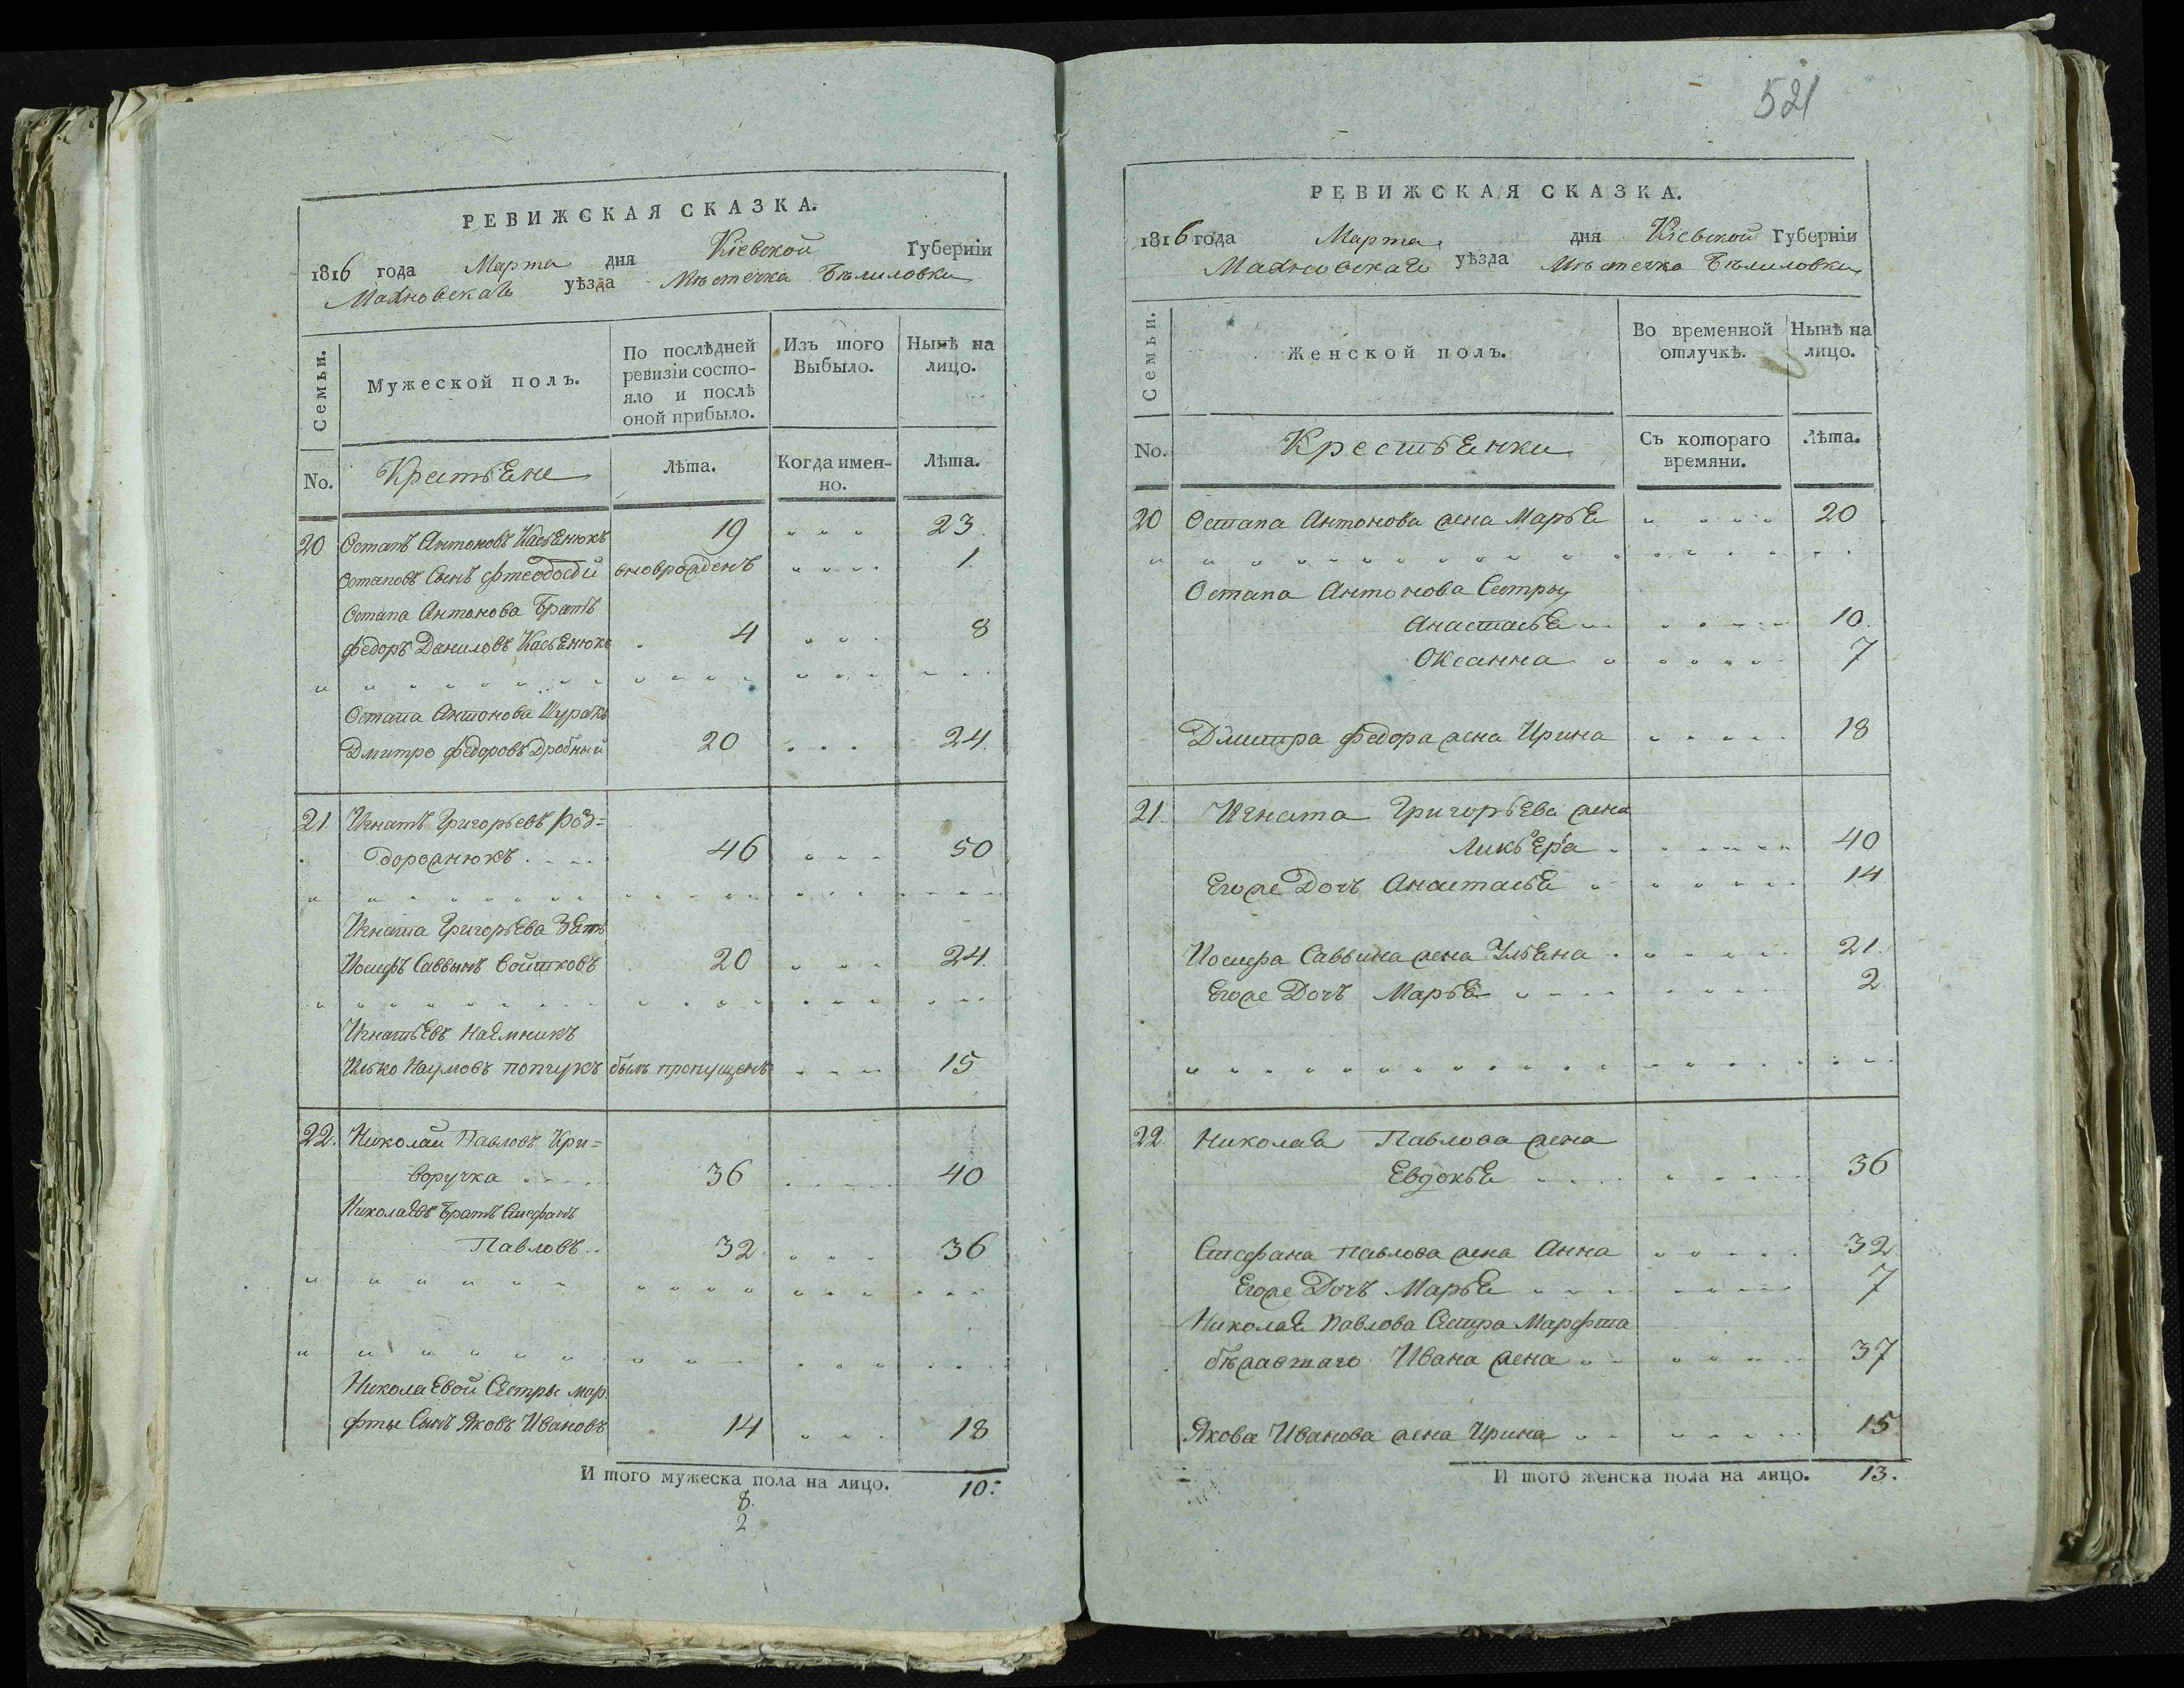 РЕВИЖСКАЯ СКАЗКА.
1816 года Марта дня Кіевской Губерніи
Махновскаго уѣзда Мѣстечка Бѣлиловки
Семьи.
Мужеской полъ.
По послѣдней ревизіи состо-яло и послѣ оной прибыло.
Изъ того Выбыло.
Нынѣ на лицо.
No. Крестьѣне Лѣта. Когда имен-но. Лѣта.
20 Остапъ Антоновъ Касьѣнюкъ 19 23.
Остаповъ Сынъ Фтеодосій вноврожденъ 1.
Остапа Антонова Братъ
Федоръ Даниловъ Касьѣнюкъ 4 8
Остапа Антонова Шуракъ
Дмитро Федоровъ Дробный 20 24.
21 Игнатъ Григорьевъ Роз=
дорожнюкъ 46 50
Игната Григорьева Зять
Иосифъ Саввинъ Войтковъ 20 24.
Игнатьевъ Наемникъ
Илько Наумовъ Попчукъ былъ пропущенъ 15
22. Николай Павловъ Кри=
воручка 36 40
Николаевъ Братъ Стефанъ
Павловъ 32 36
Николаевой Сестры Мар
фты Сынъ Яковъ Ивановъ 14 18
И того мужеска пола на лицо. 10.
8.
2
521
РЕВИЖСКАЯ СКАЗКА.
1816 года Марта дня Кіевской Губерніи
Махновскаго уѣзда Мѣстечка Бѣлиловки
Семьи.
Женской полъ.
Во временной отлучкѣ.
Нынѣ на лицо.
No. Крестьѣнки Съ котораго времяни. Лѣта.
20 Остапа Антонова жена Марья 20
Остапа Антонова Сестры
Анастасья 10.
Оксанна 7
Дмитра Федора жена Ирина 18
21. Игната Григорьева жена
Ликерʼа 40
Егоже Дочъ Анастасья 14
Иосифа Саввина жена Ульяна 21.
Егоже Дочъ Марья 2
22 Николая Павлова жена
Евдокья 36
Стефана Павлова жена Анна 32
Егоже Дочъ Марья 7
Николая Павлова Сестра Марфта
бѣжавшаго Ивана жена 37
Якова Иванова жена Ирина 15
И того женска пола на лицо. 13.